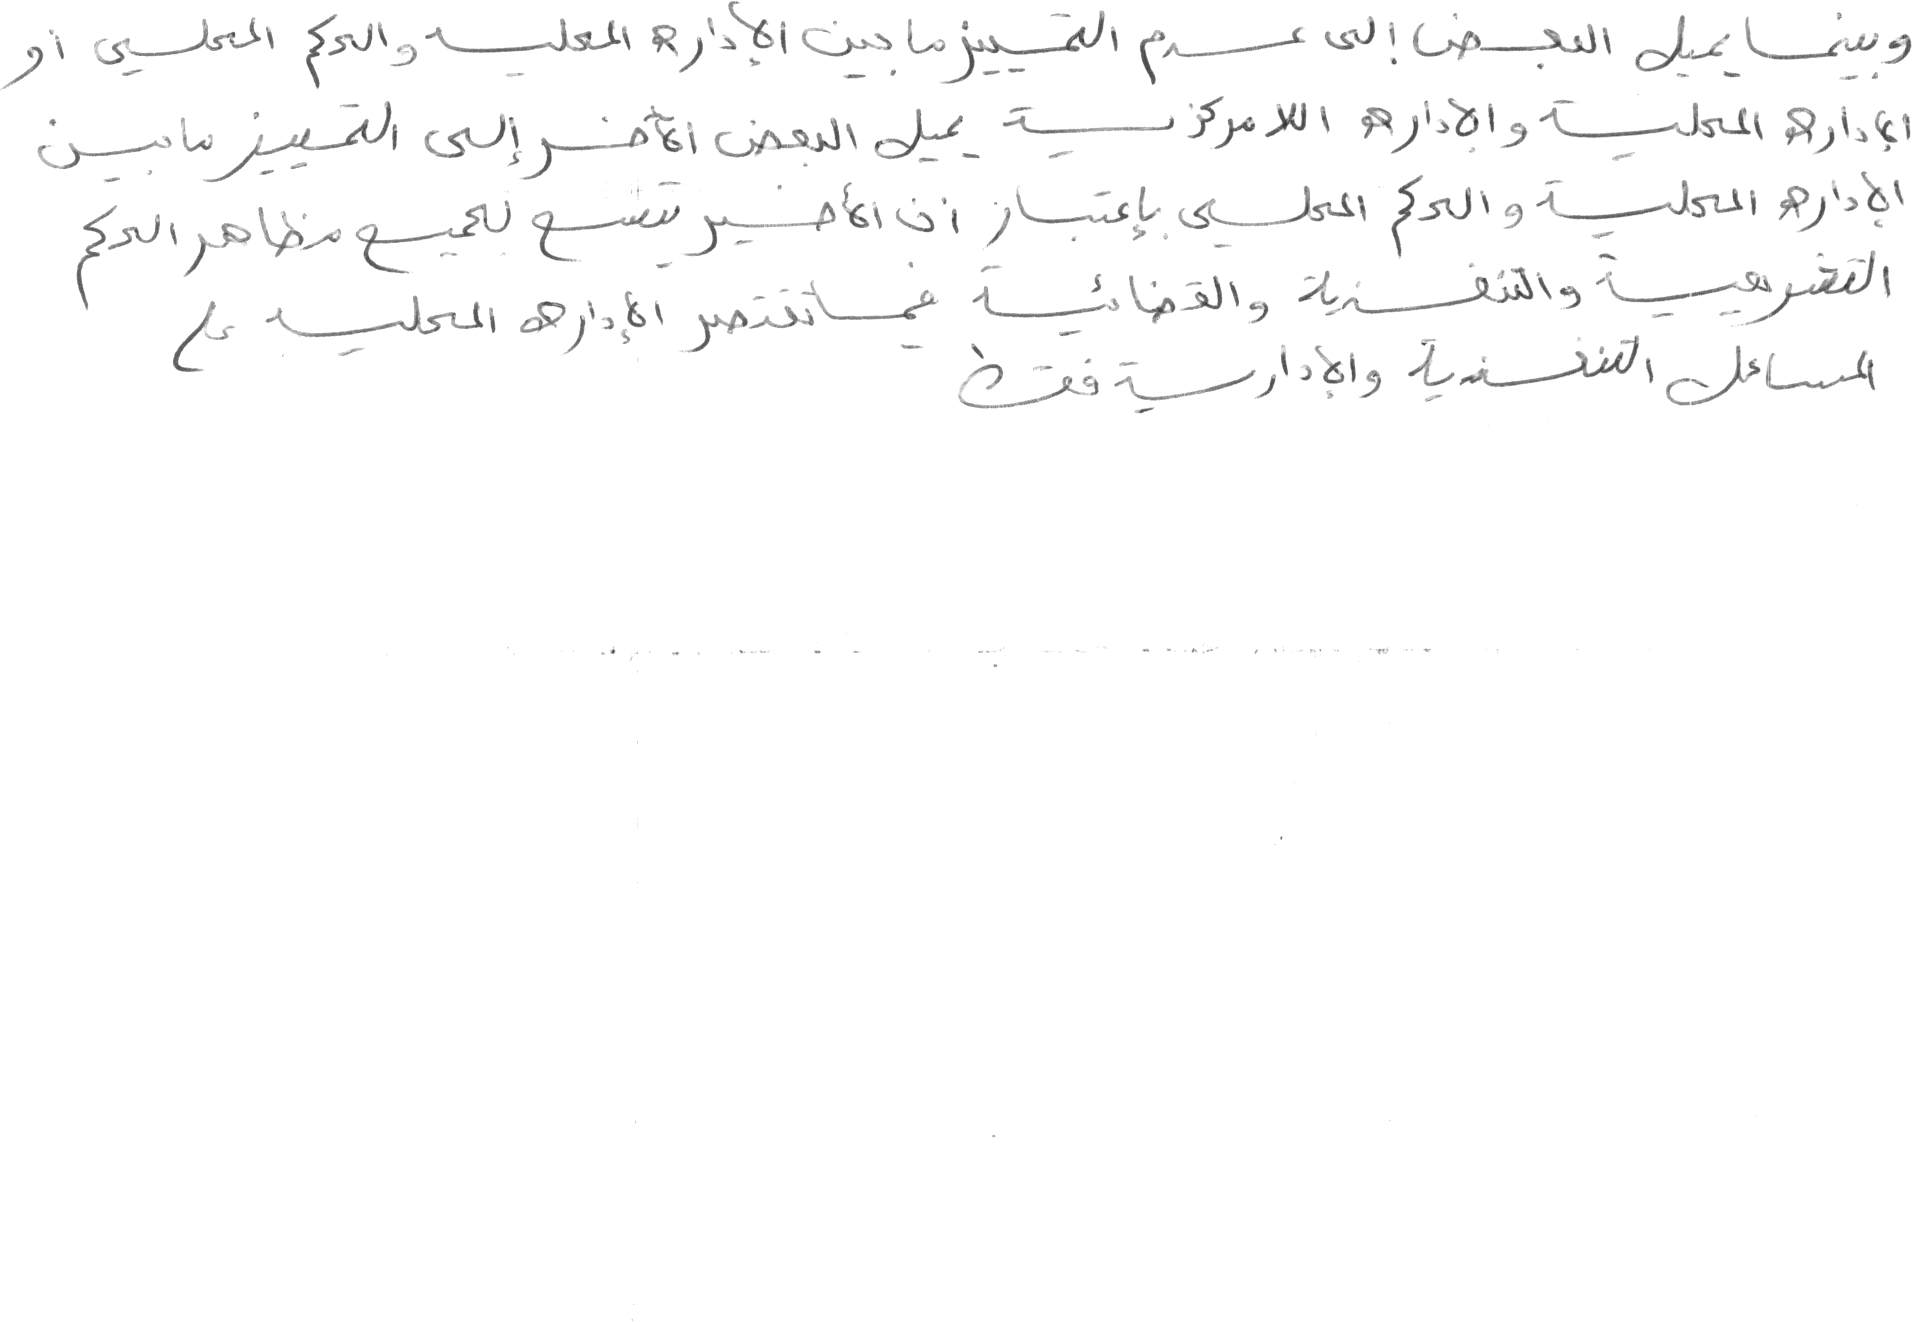 وبينما يميل البعض إلى عدم التمييز ما بين الإداره المحليه والحكم المحلي أو
الإداره المحلية والإداره اللامركزية يميل البعض الأخر إلى التمييز ما بين
الإداره المحلية والحكم المحلي بإعتبار أن الأخير يتسع لجميع مظاهر الحكم
التشريعية والتنفيذية والقضائية فيما تقتصر الإداره المحليه على
المسائل التنفيذية والإدارية فقط